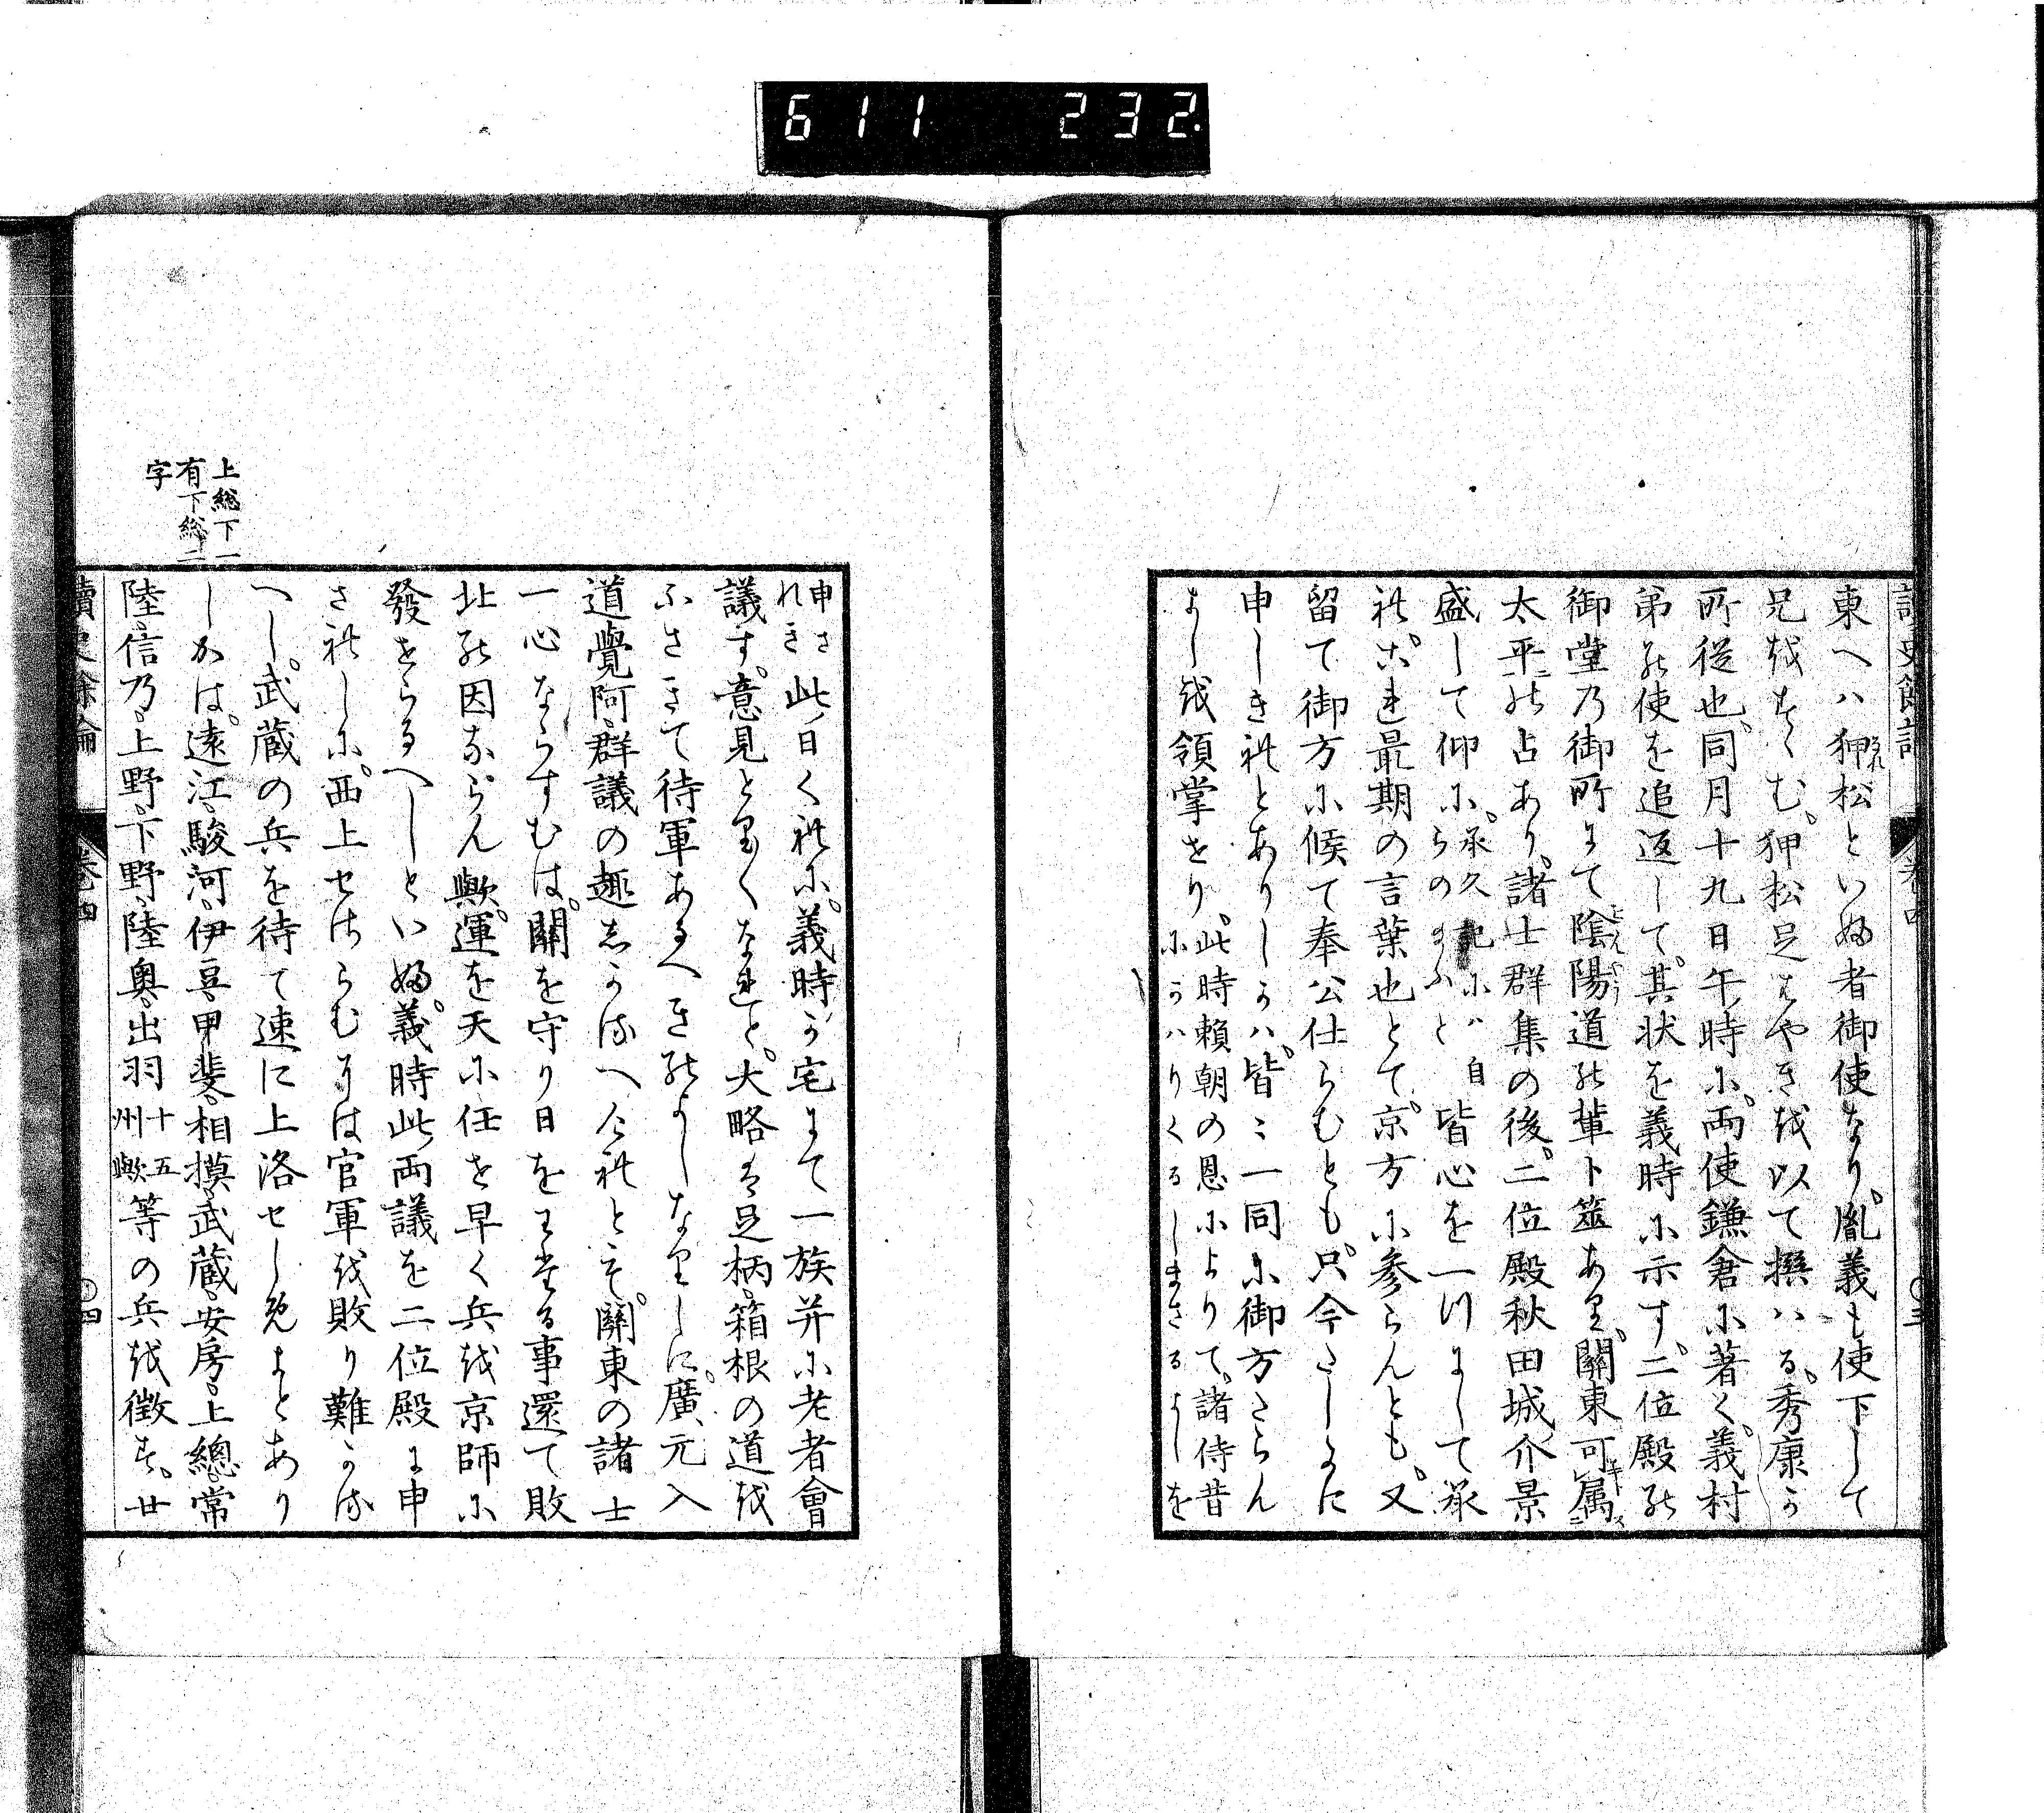 611 232.
讀史餘論 卷四 ○三
東へハ狎松といふ者御使なり。胤義も使下して
兄をすゝむ。狎松足はやきを以て撰ハる。秀康か
所従也。同月十九日午時に。両使鎌倉に著く。義村
弟の使を追返して。其状を義時に示す。二位殿の
御堂乃御所にて陰陽道の輩卜筮あり。關東可属
太平の占あり。諸士群集の後。二位殿秋田城介景
盛して仰に。承久記にハ自らのまふと皆心を一つにして承
れ。これ最期の言葉也とて。京方に参らんとも。又
留て御方に候て奉公仕らむとも。只今たしかに
申しき れとありしかハ。皆ミ一同に御方たらん
よしを領掌せり 此時頼朝の恩によりて。諸侍昔にかハりくるしまさるよしを
申されき 此日くれに。義時か宅にて一族并に老者會
議す。意見とりくなれと。大略は足柄箱根の道を
ふさきて待軍あるへきのよしなりしに。廣元入
道覺阿。群議の趣しかるへくれとも。關東の諸士
一心ならすむは。關を守り日をわたる事還て敗
北の因ならん歟。運を天に任せ早く兵を京師に
發せらるへしといふ。義時此両議を二位殿に申
されしに。西上せさらむには官軍を敗り難かる
へし。武蔵の兵を待て速に上洛せしめよとあり
しかは。遠江駿河伊豆甲斐相摸武蔵安房上總常
陸信乃上野下野陸奥出羽十五州歟等の兵を徴す。廿
上総下一
有下総二
字
讀史餘論 巻四 ○四